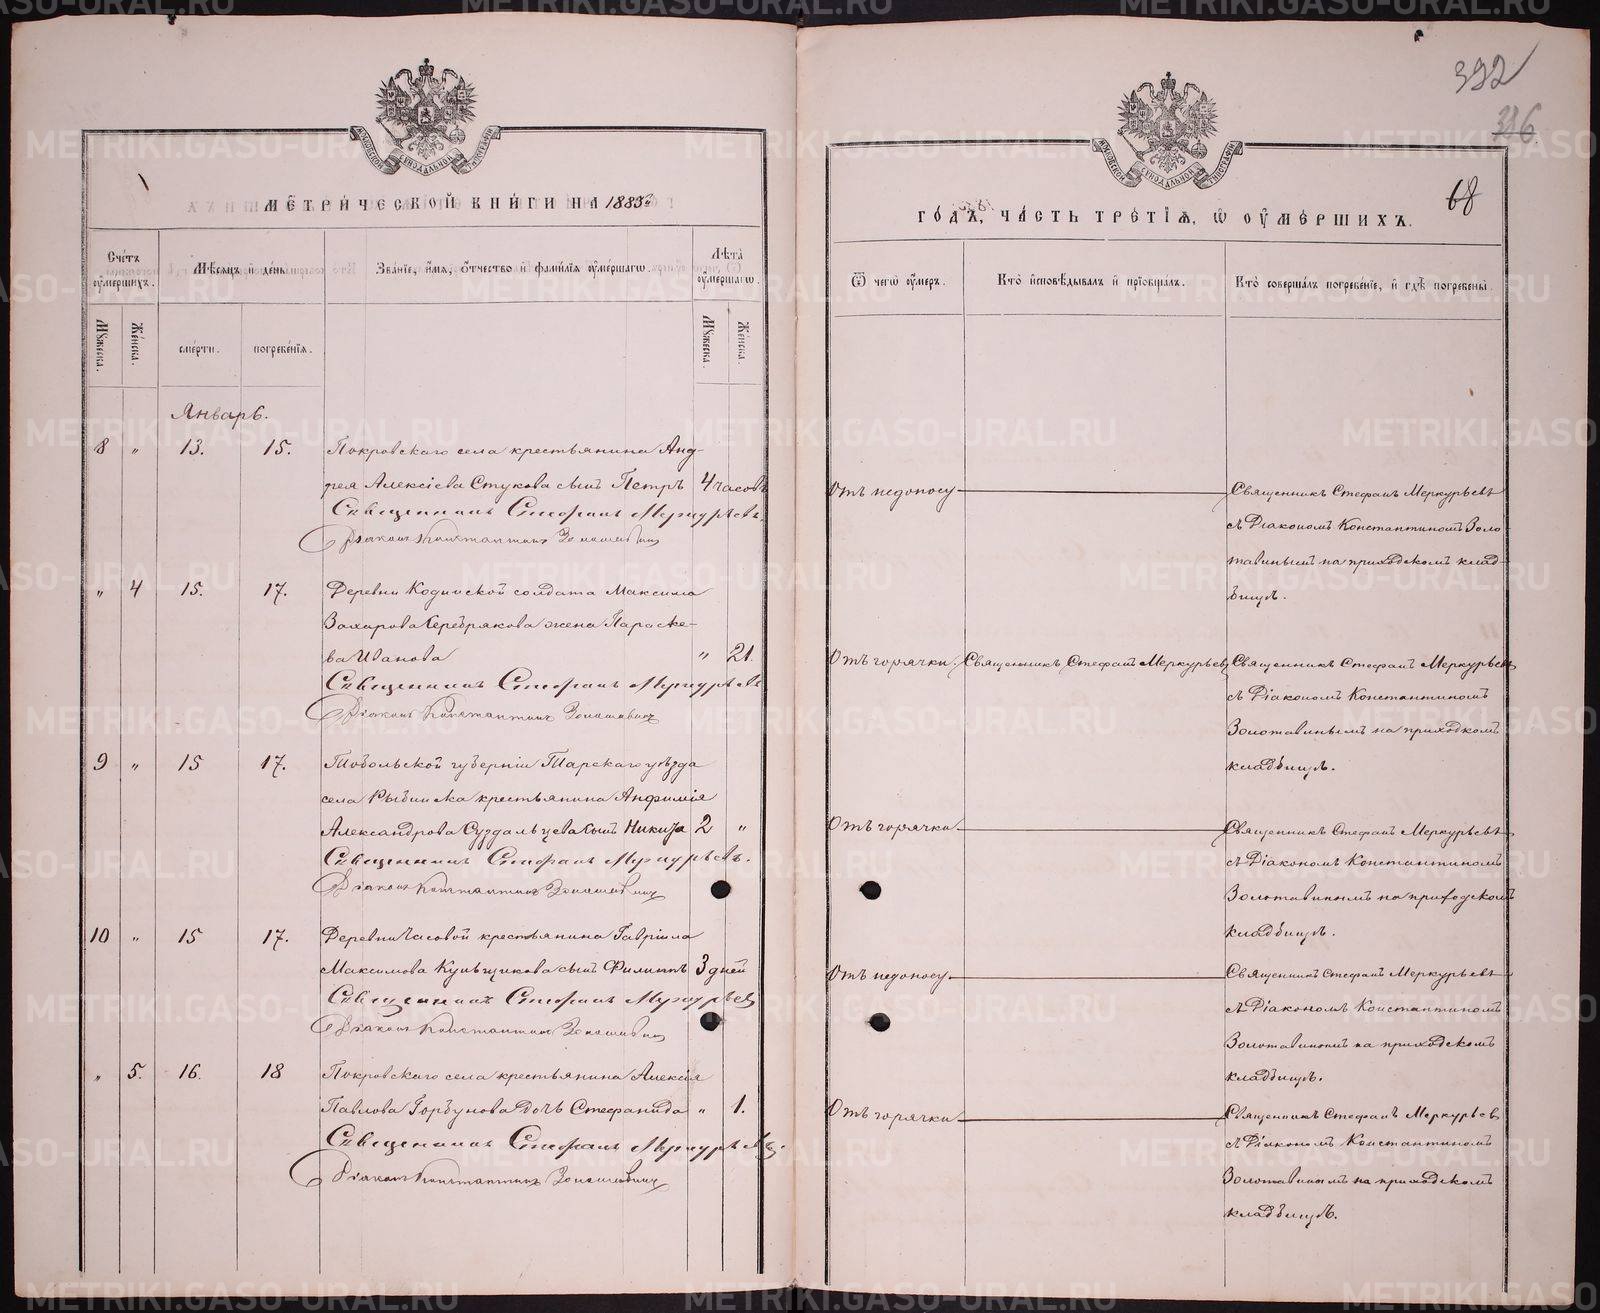 МЕТРИЧЕСКОЙ КНИГИ НА 1883й
Счетъ оумершихъ.
Мѣсяцъ и день.
Званіе, имя, отчество и фамилія оумершаго.
Лѣта оумершаго.
Мужеска.
Женска.
смерти.
погребенія.
Мужеска.
Женска.
Январь.
8 " 13. 15. Покровскаго села крестьянина Анд-
рея Алексіева Стукова сынъ Петръ 4 часовъ
Священникъ Стефанъ Меркурьевъ.
Діаконъ Константинъ Золотавинъ
" 4 15. 17. Деревни Кодинской солдата Максима
Захарова Серебрякова жена Параске-
ва Иванова " 21.
Священникъ Стефанъ Меркурьевъ
Діаконъ Константинъ Золотавинъ
9 " 15 17. Тобольской губерніи Тарскаго уѣзда
села Рыбинска крестьянина Анфимія
Александрова Суздальцева сынъ Никита 2 "
Священникъ Стефанъ Меркурьевъ.
Діаконъ Константинъ Золотавинъ
10 " 15 17. Деревни Часовой крестьянина Гавріила
Максимова Кульщикова сынъ Филиппъ 3 дней
Священникъ Стефанъ Меркурьевъ
Діаконъ Константинъ Золотавинъ
" 5. 16. 18 Покровскаго села крестьянина Алексія
Павлова Горбунова дочь Стефанида " 1.
Священникъ Стефанъ Меркурьевъ.
Діаконъ Константинъ Золотавинъ
392
68
ГОДЪ, ЧАСТЬ ТРЕТІЯ, Ѡ ОУМЕРШИХЪ.
Ѿ чегѡ оумеръ.
Кто исповѣдывалъ и пріобщалъ.
Кто совершалъ погребеніе, и гдѣ погребены.
Отъ недоносу
Священникъ Стефанъ Меркурьевъ
съ Діакономъ Константиномъ Золо-
тавинымъ на приходскомъ клад-
бищѣ.
Отъ горячки. Священникъ Стефанъ Меркурьевъ Священникъ Стефанъ Меркурьевъ
съ Діакономъ Константиномъ
Золотавинымъ на приходкомъ
кладбищѣ.
Отъ горячки
Священникъ Стефанъ Меркурьевъ
съ Діакономъ Константиномъ
Золотавинымъ на приходскомъ
кладбищѣ.
Отъ недоносу
Священникъ Стефанъ Меркурьевъ
съ Діакономъ Константиномъ
Золотавиномъ на приходскомъ
кладбищѣ.
Отъ горячки
Священникъ Стефанъ Меркурьевъ
съ Діакономъ Константиномъ
Золотавинымъ на приходскомъ
кладбищѣ.
METRIKI.GASO-URAL.RU